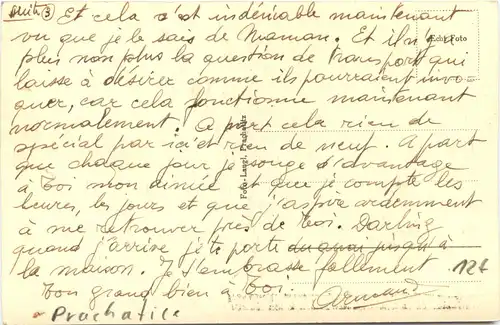 suite ③ Et cela c'est indéniable maintenant
vu que je le sais de Maman. Et il n'y a
plus non plus la question de transport qui
laisse à désirer comme ils pourraient invo-
quer, car cela fonctionne maintenant
normalement. A part cela rien de
spécial par ici et rien de neuf. A part
que chaque jour je songe d'avantage
à toi mon aimée et que je compte les
heures, les jours et que j'aspire ardemment
à me retrouver près de toi. Darling
quand j'arrive je te porte jusqu'à
la maison. Je t'embrasse follement
Ton grand bien à Toi. Armand
Prachatice
12€
Echt Foto
Foto-Langl. Prachatitz